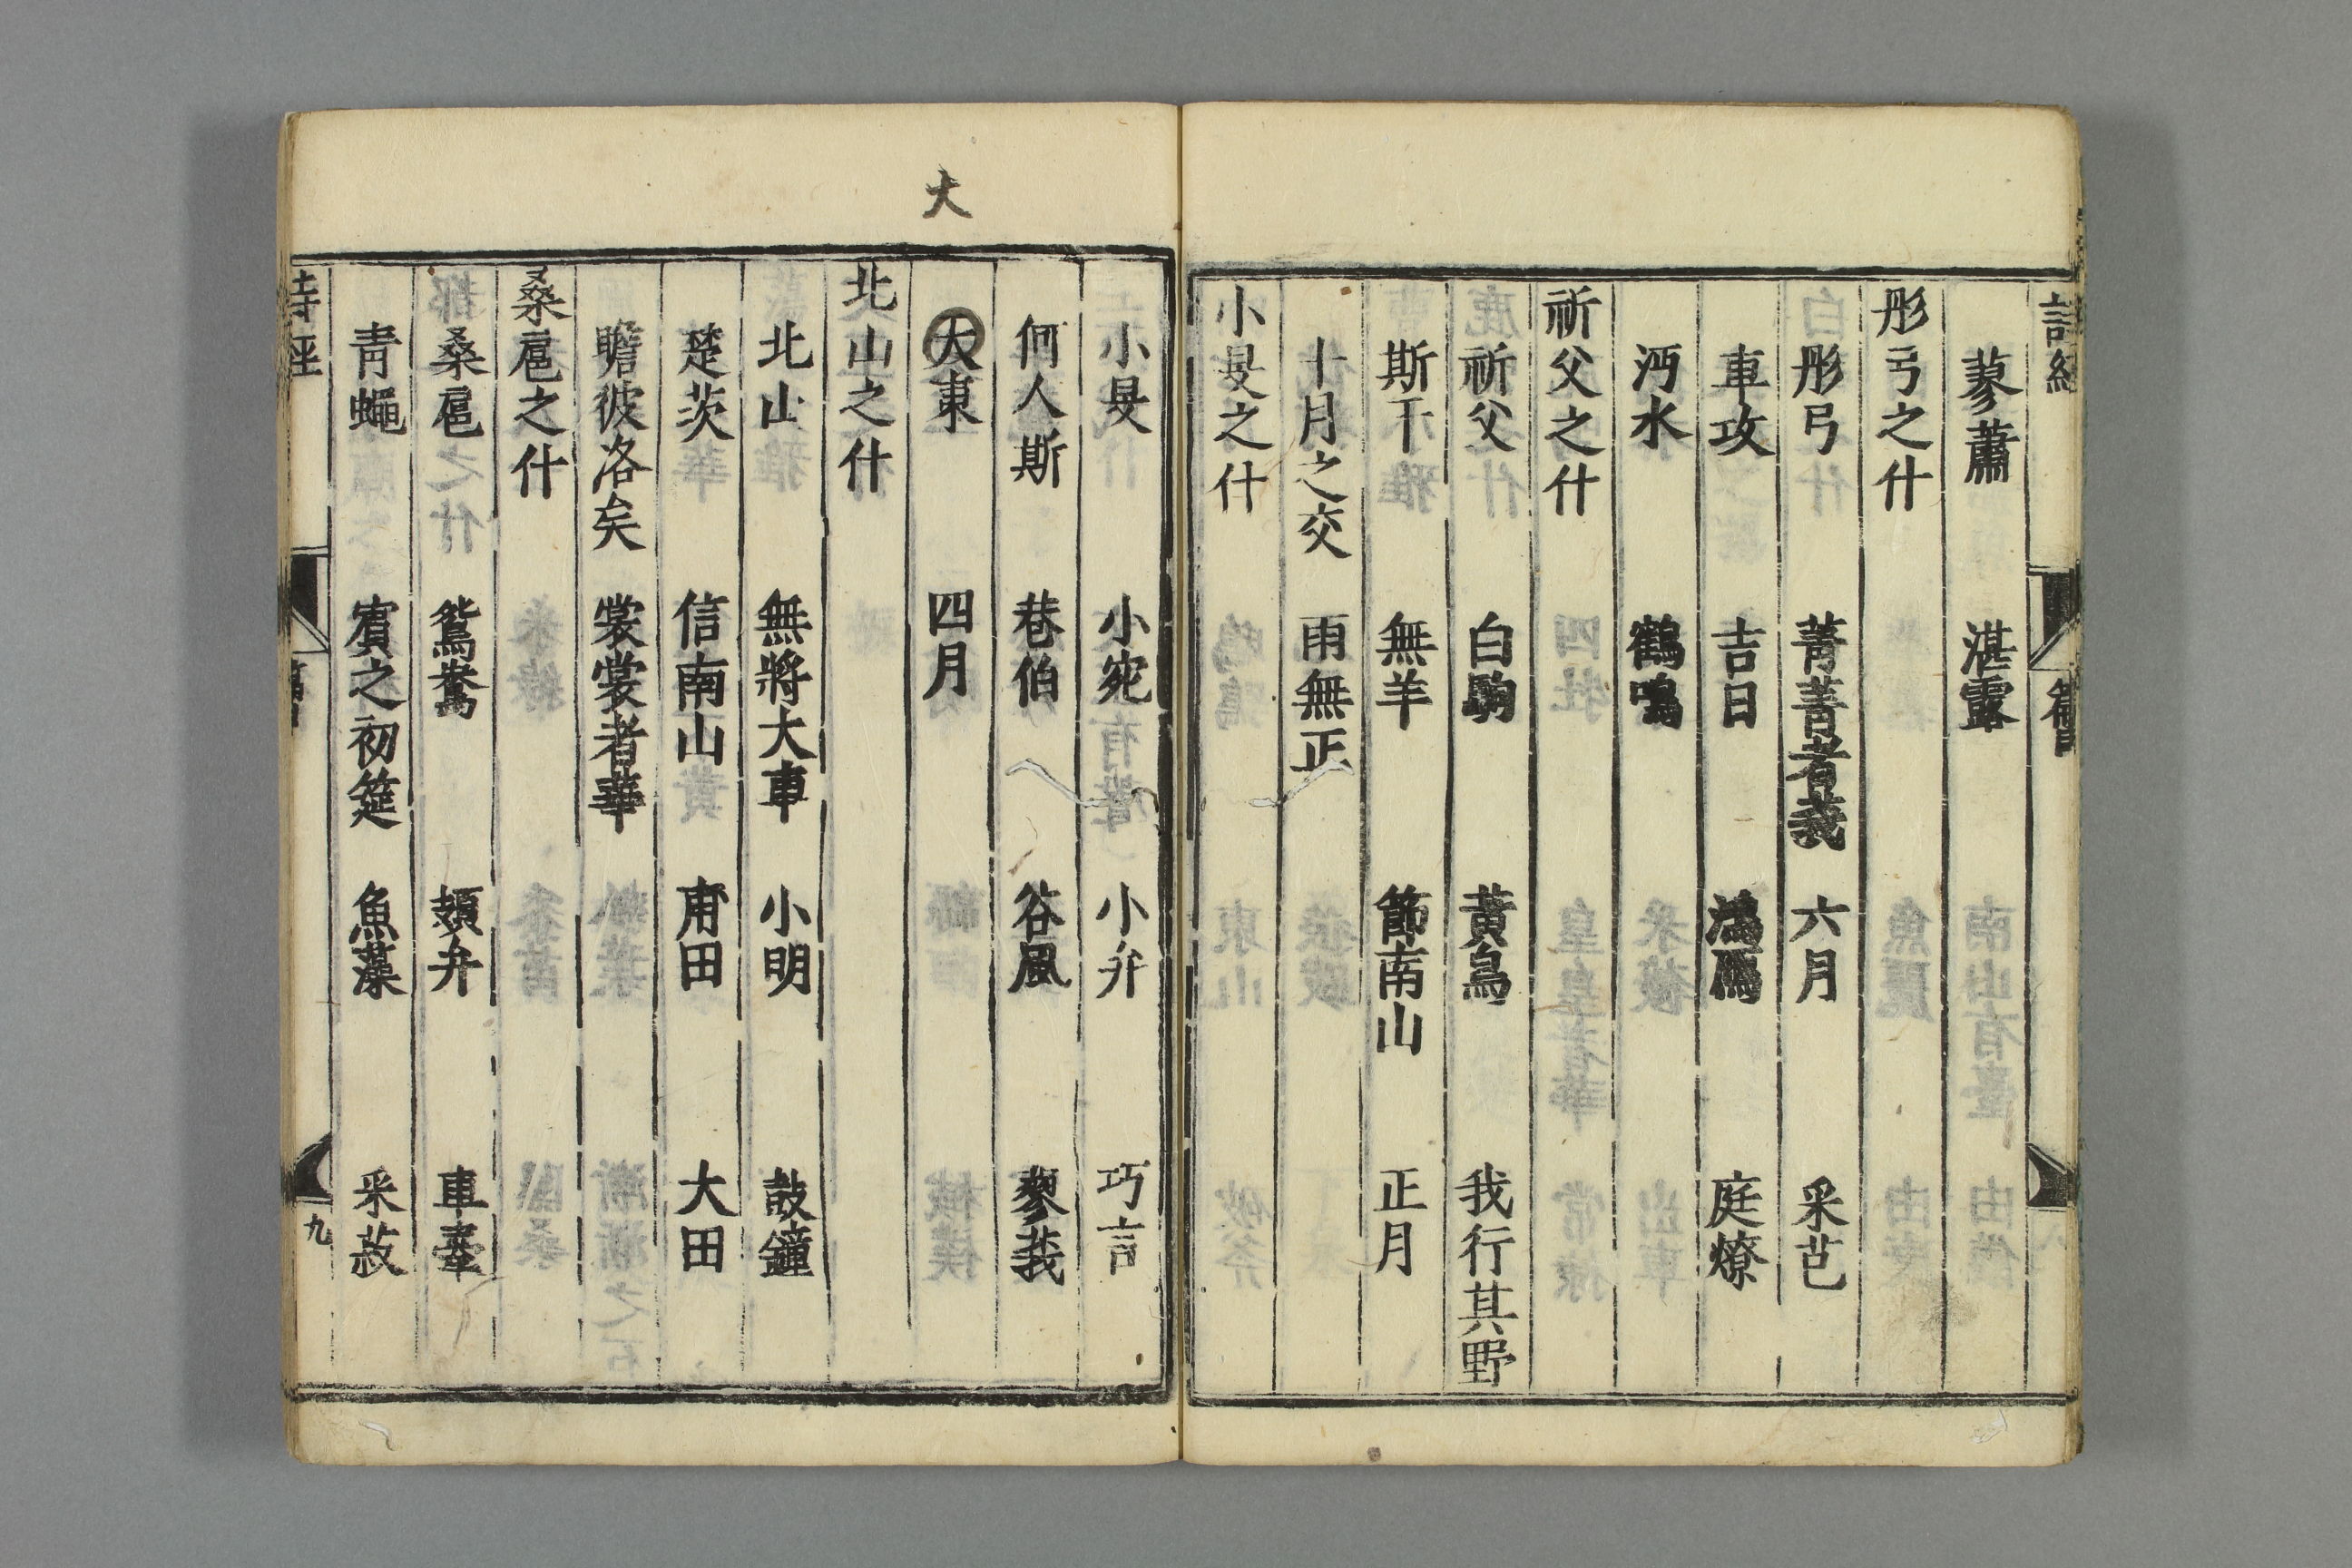 詩經
蓼蕭 湛露
彤弓之什
彤弓 菁菁者莪 六月 采芑
車攻 吉日 鴻鴈 庭燎
沔水 鶴鳴
祈父之什
祈父 白駒 黃鳥 我行其野
斯干 無羊 節南山 正月
十月之交 雨無正
小旻之什
大
小旻 小宛 小弁 巧言
何人斯 巷伯 谷風 蓼莪
大東 四月
北山之什
北山 無將大車 小明 鼓鐘
楚茨 信南山 甫田 大田
瞻彼洛矣 裳裳者華
桑扈之什
桑扈 鴛鴦 頍弁 車舝
青蠅 賓之初筵 魚藻 采菽
詩經 九